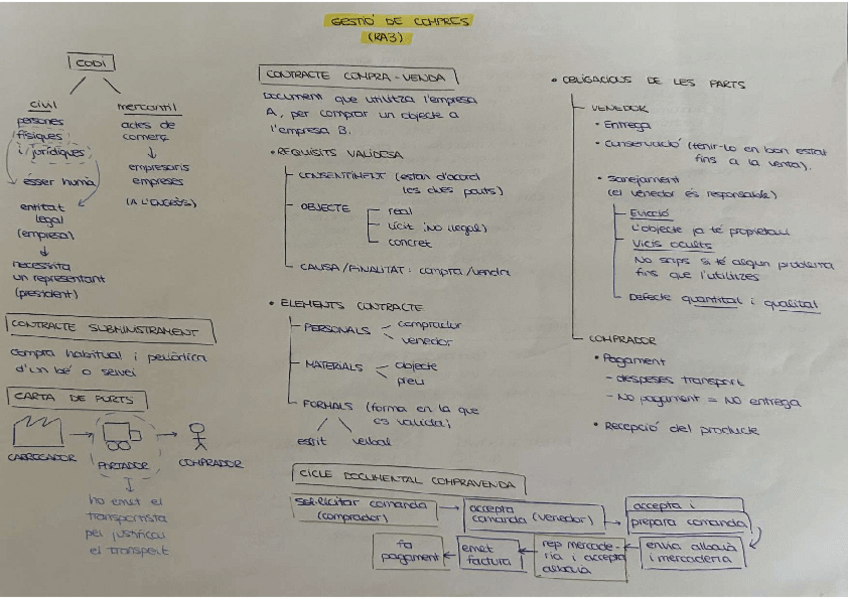 GESTIÓ DE COMPRES
(RA3)
CODI
civil
persones
físiques
i jurídiques
ésser humà
entitat
legal
(empresa)
necessita
un representant
(president)
mercantil
actes de
comerç
empresaris
empreses
(A L'ENGRÒS)
CONTRACTE SUBMINISTRAMENT
compra habitual i periòdica
d'un bé o servei
CARTA DE PORTS
CARREGADOR
PORTADOR
COMPRADOR
ho emet el
transportista
per justificar
el transport
CONTRACTE COMPRA-VENDA
Document que utilitza l'empresa
A, per comprar un objecte a
l'empresa B.
• REQUISITS VALIDESA
CONSENTIMENT (estan d'acord
les dues parts)
OBJECTE
real
lícit (NO il·legal)
concret
CAUSA/FINALITAT: compra/vendre
• ELEMENTS CONTRACTE
PERSONALS
comprador
venedor
MATERIALS
objecte
preu
FORMALS (forma en la que
es valida)
escrit verbal
• OBLIGACIONS DE LES PARTS
VENEDOR
• Entrega
• Conservació (tenir-lo en bon estat
fins a la venta).
• Sanejament
(el venedor és responsable)
Evicció
L'objecte ja té propietari
Vicis ocults
No saps si té algun problema
fins que l'utilitzes
Defecte quantitat i qualitat
COMPRADOR
• Pagament
- despeses transport
- No pagament = NO entrega
• Recepció del producte
CICLE DOCUMENTAL COMPRAVENDA
sol·licitar comanda
(comprador)
accepta
comanda (venedor)
accepta i
prepara comanda
envia albarà
i mercaderia
rep mercade-
ria i accepta
albarà
emet
factura
fa
pagament